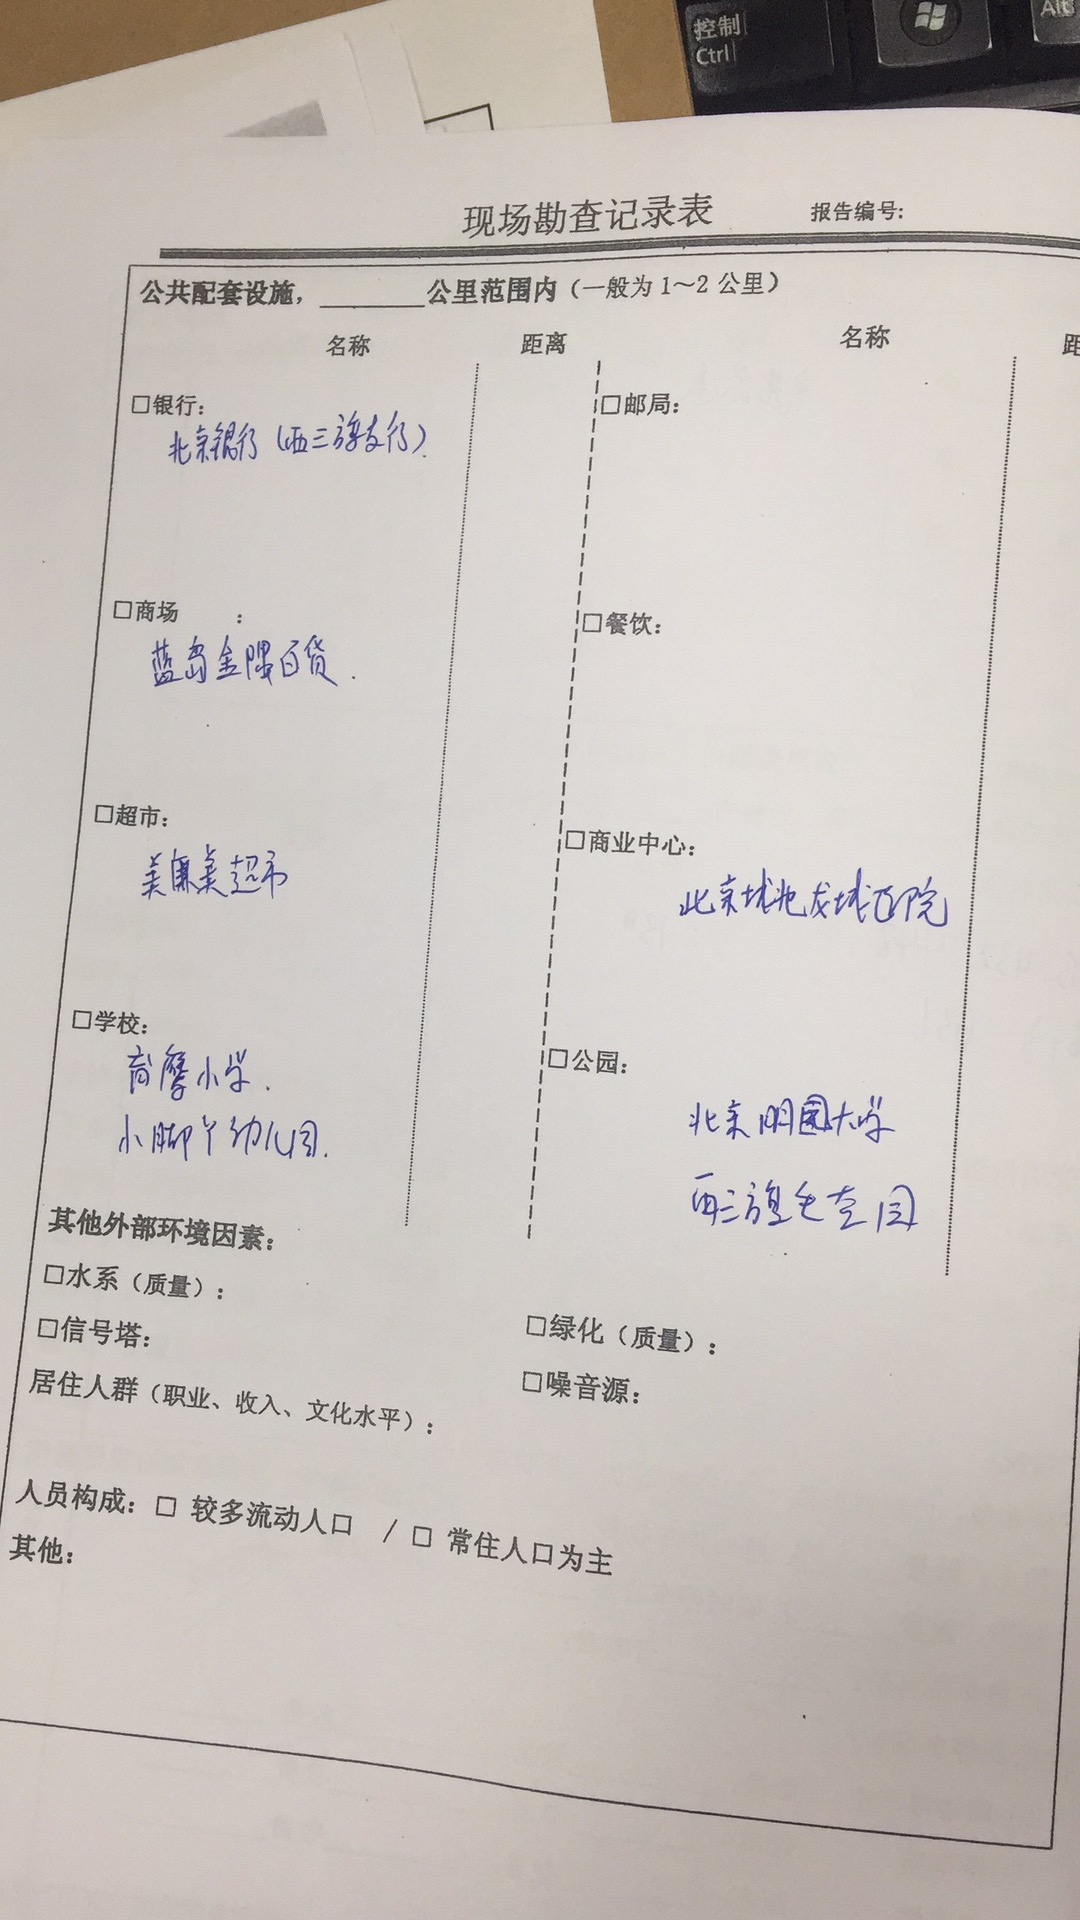 控制
Ctrl
Alt
现场勘查记录表 报告编号:
公共配套设施，________公里范围内（一般为 1～2 公里）
名称 距离 名称 距
□银行： □邮局：
北京银行（西三旗支行）
□商场 ： □餐饮：
蓝岛金隅百货.
□超市： □商业中心：
美廉美超市
北京城北龙城医院
□学校： □公园：
育鹰小学.
北京明园大学
小脚丫幼儿园.
西三旗 园
其他外部环境因素：
□水系（质量）： □绿化（质量）：
□信号塔： □噪音源：
居住人群（职业、收入、文化水平）：
人员构成：□ 较多流动人口 / □ 常住人口为主
其他：